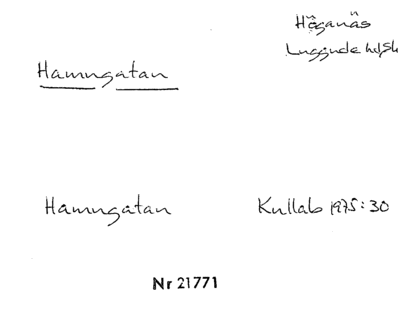 Höganäs
Luggude hd, Sk
Hamngatan
Hamngatan
Kullab 1975:30
Nr 21771